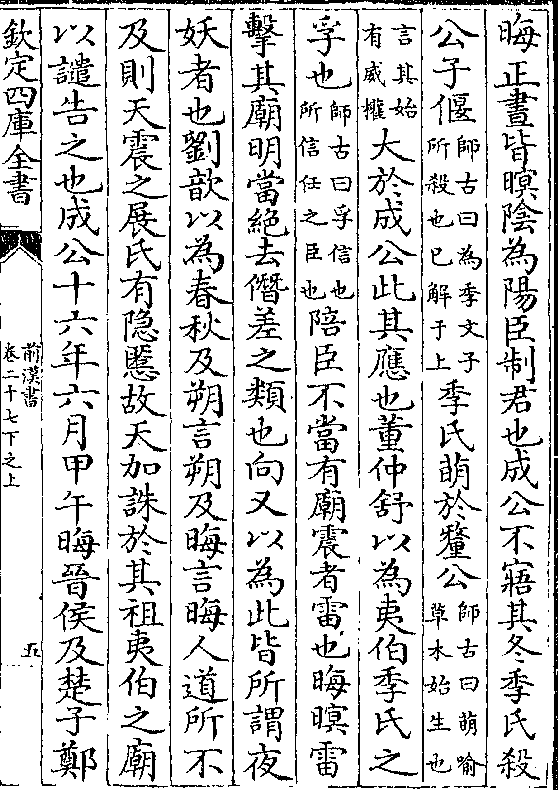 晦正晝皆暝陰為陽臣制君也成公不寤其冬季氏殺
公子偃師古曰為季文子所殺也已解于上季氏萌於釐公師古曰萌喻草木始生也
言其始有威權大於成公此其應也董仲舒以為夷伯季氏之
孚也師古曰孚信也所信任之臣也陪臣不當有廟震者雷也晦暝雷
擊其廟明當絕去僭差之類也向又以為此皆所謂夜
妖者也劉歆以為春秋及朔言朔及晦言晦人道所不
及則天震之展氏有隐慝故天加誅於其祖夷伯之廟
以譴告之也成公十六年六月甲午晦晉侯及楚子鄭
欽定四庫全書
前漢書
卷二十七下之上
五